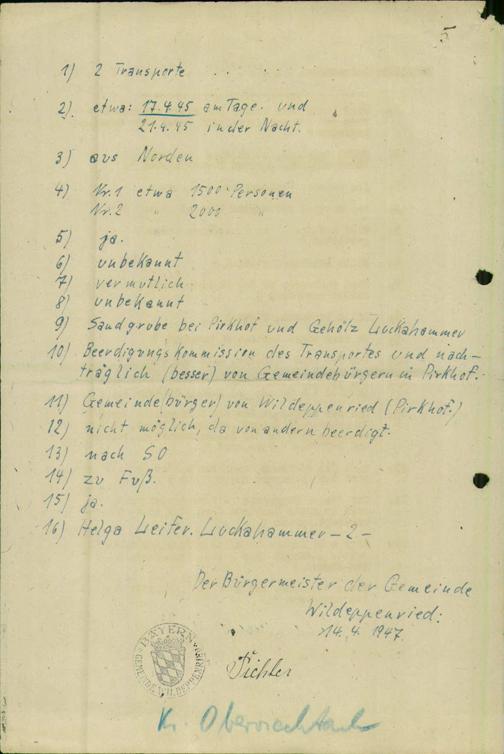 1) 2 Transporte
2) etwa: 17.4.45 am Tage. und
21.4.45 in der Nacht.
3) aus Norden
4) Nr. 1 etwa 1500 Personen
Nr. 2 " 2000 "
5) ja.
6) unbekannt
7) vermutlich
8) unbekannt
9) Sandgrube bei Pirkhof und Gehölz Luckahammer
10) Beerdigungskommission des Transportes und nach-
träglich (besser) von Gemeindebürgern in Pirkhof.
11) Gemeinde(bürger) von Wildeppenried (Pirkhof.)
12) nicht möglich, da von andern beerdigt.
13) nach SO
14) zu Fuß.
15) ja.
16) Helga Leifer. Luckahammer -2-
Der Bürgermeister der Gemeinde
Wildeppenried:
14.4.1947.
BAYERN
GEMEINDE WILDEPPENRIED
Pichler
Kr. Oberviechtach